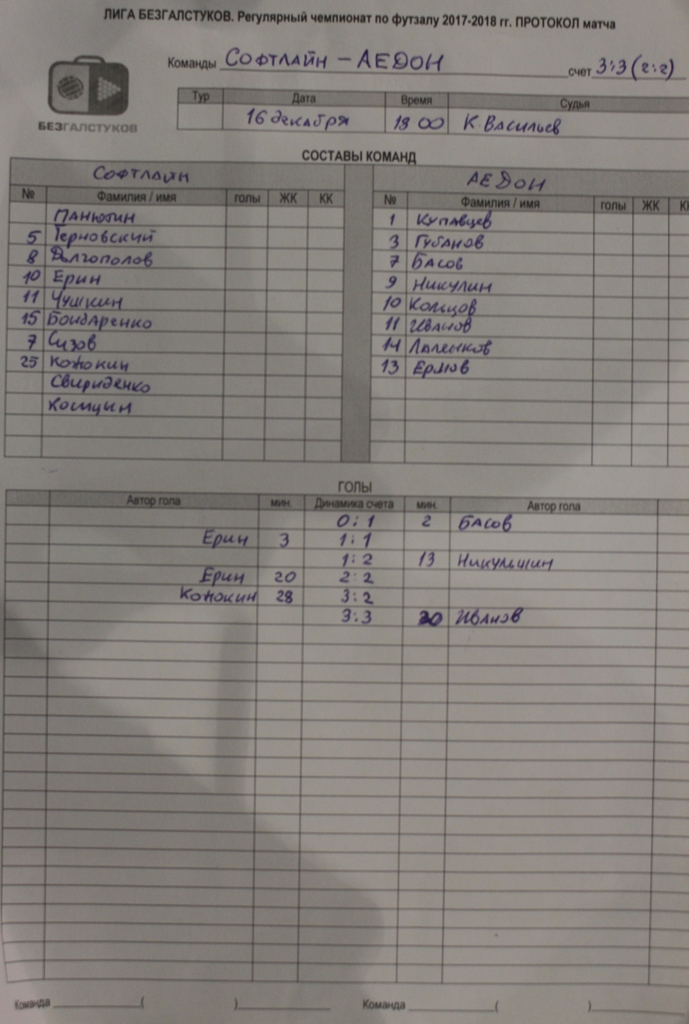 ЛИГА БЕЗГАЛСТУКОВ. Регулярный чемпионат по футзалу 2017-2018 гг. ПРОТОКОЛ матча
Команды Софтлайн - АЕДОН счет 3:3 (2:2)
БЕЗГАЛСТУКОВ
Тур Дата Время Судья
16 декабря 19 00 К. Васильев
СОСТАВЫ КОМАНД
Софтлайн АЕДОН
№ Фамилия / имя голы ЖК КК № Фамилия / имя голы ЖК
Панютин 1 Купавцев
5 Терновский 3 Губанов
8 Долгополов 7 Басов
10 Ерин 9 Никулин
11 Чушкин 10 Кольцов
15 Бондаренко 11 Иванов
7 Сизов 14
25 Кожокин 13
Свириденко
ГОЛЫ
Автор гола мин. Динамика счета мин. Автор гола
0:1 2 Басов
Ерин 3 1:1
1:2 13 Никульшин
Ерин 20 2:2
Кожокин 28 3:2
3:3 30 Иванов
Команда ( ) Команда ( )